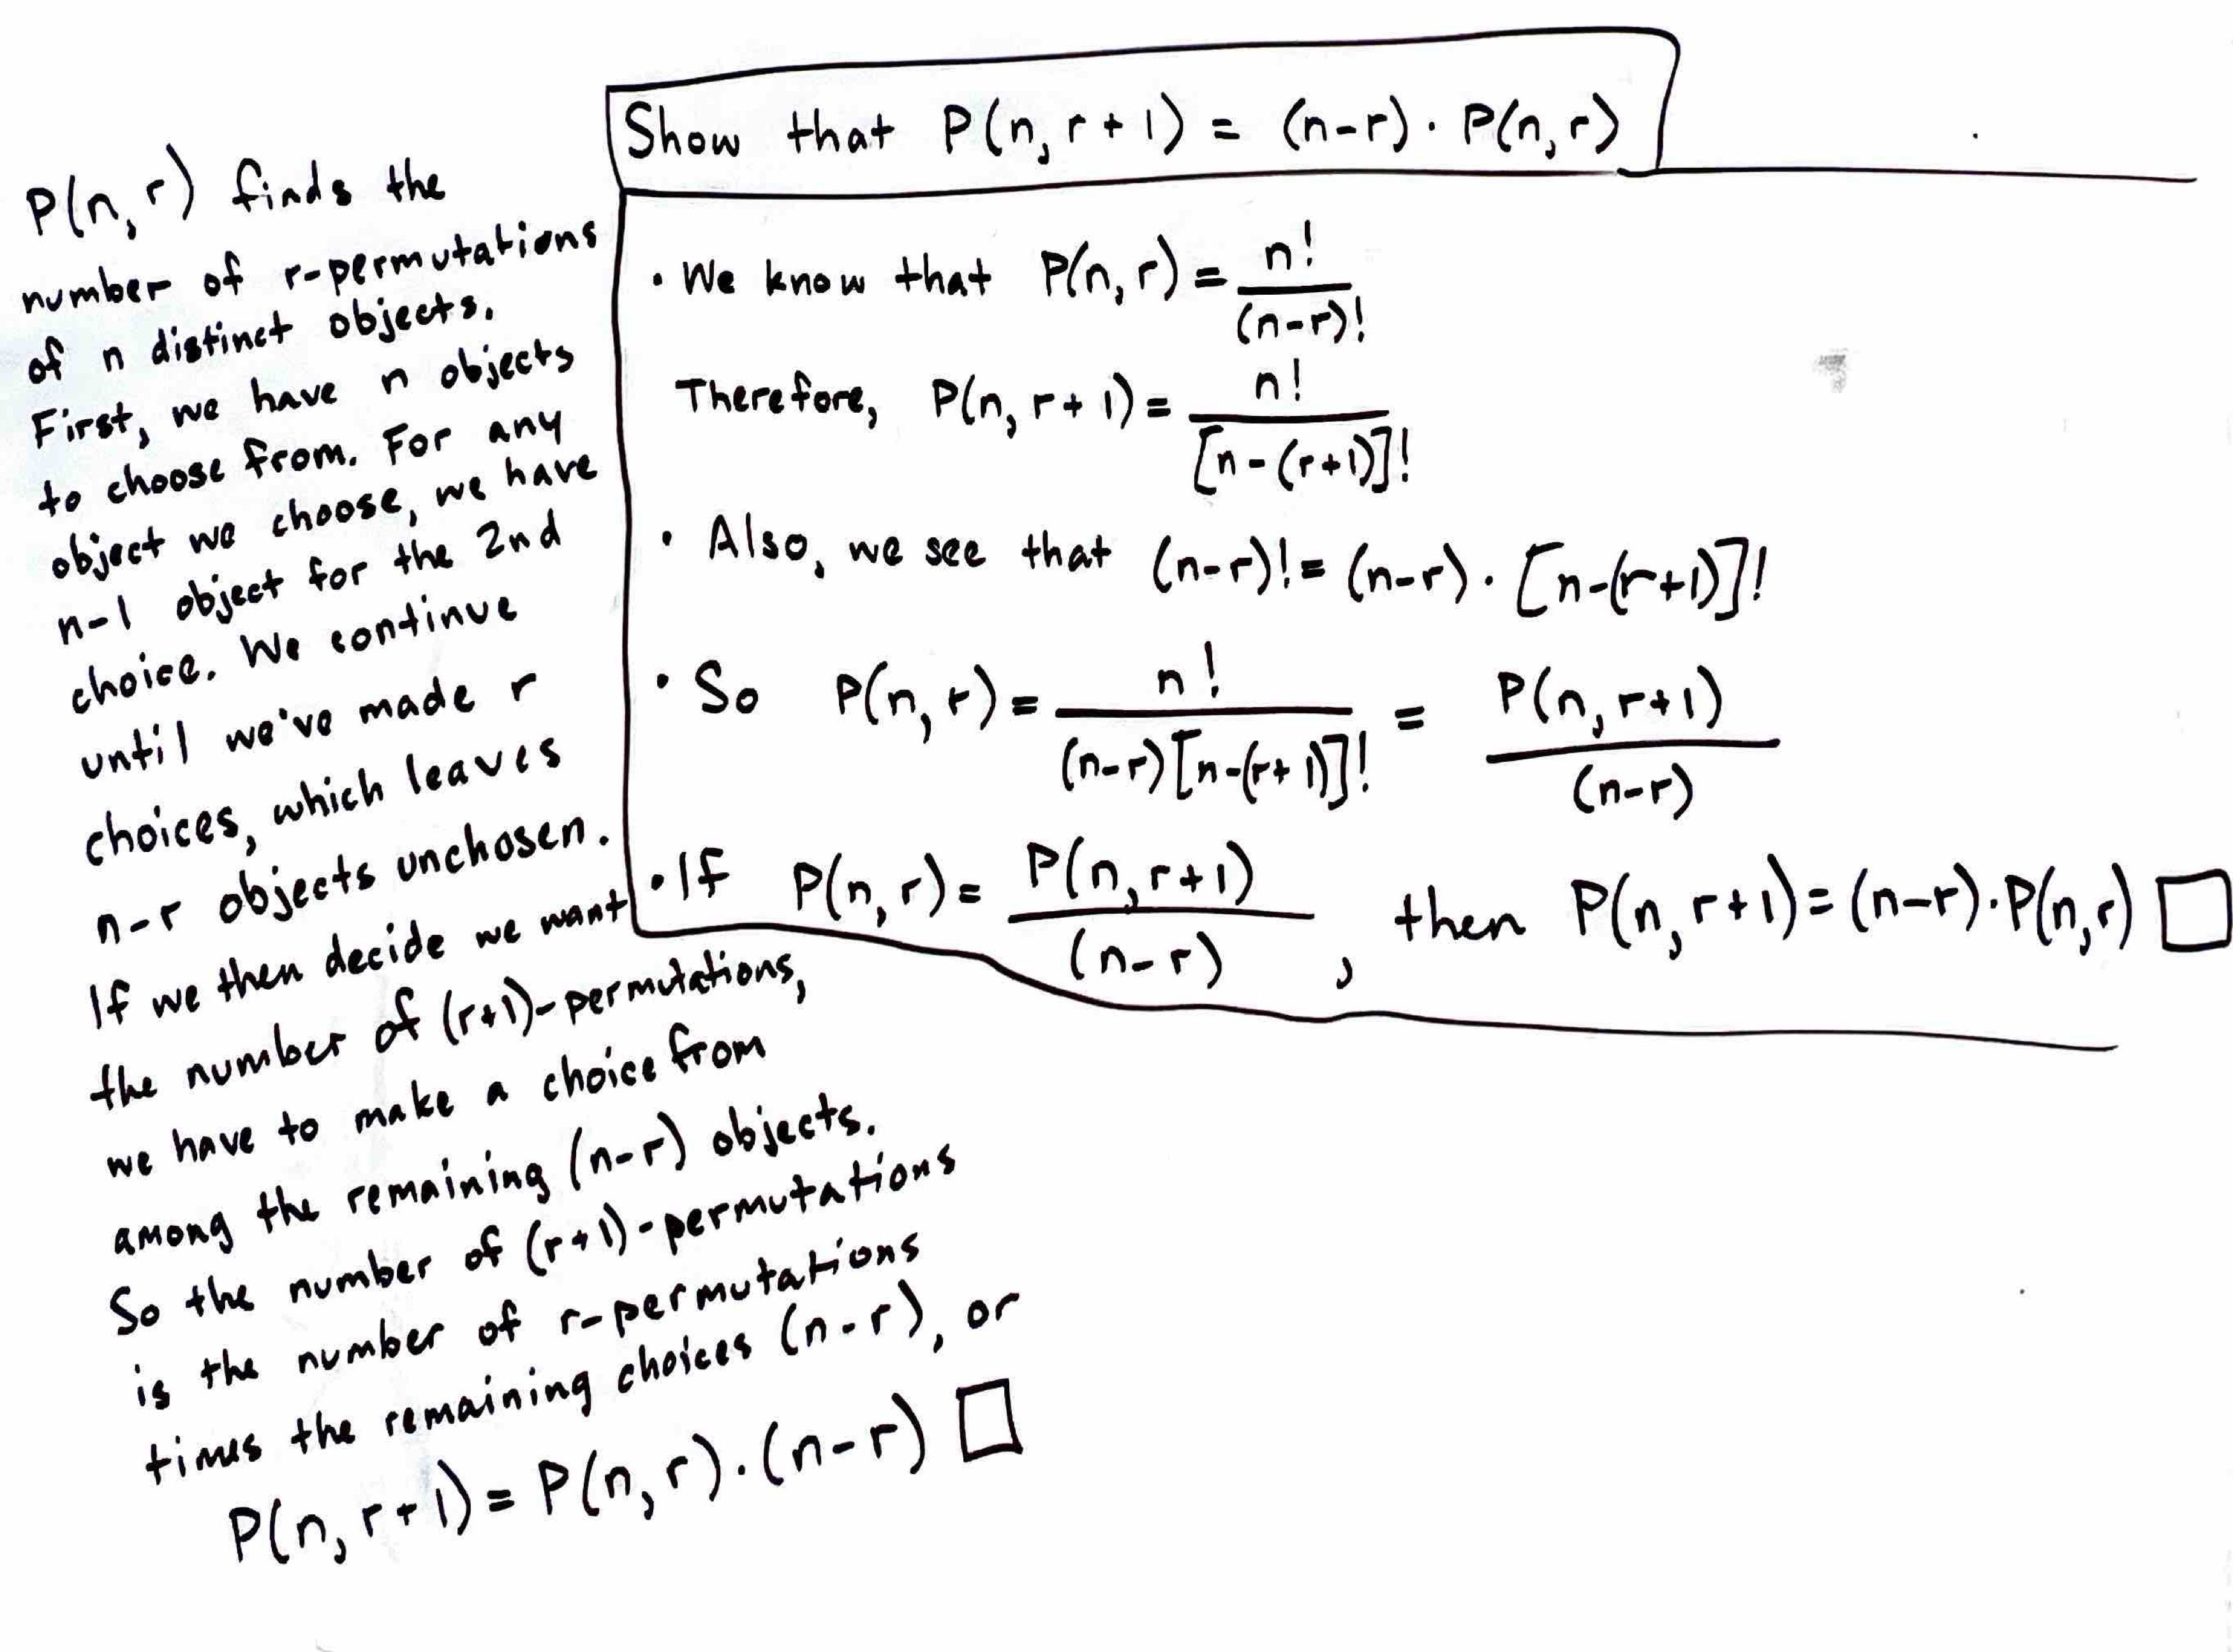 Show that P(n, r + 1) = (n-r) · P(n, r)
• We know that P(n, r) = n! / (n-r)!
Therefore, P(n, r + 1) = n! / [n - (r+1)]!
• Also, we see that (n-r)! = (n-r) · [n-(r+1)]!
• So P(n, r) = n! / (n-r)[n-(r+1)]! = P(n, r+1) / (n-r)
• If P(n, r) = P(n, r+1) / (n-r), then P(n, r+1) = (n-r) · P(n, r) □
P(n, r) finds the
number of r-permutations
of n distinct objects.
First, we have n objects
to choose from. For any
object we choose, we have
n-1 object for the 2nd
choice. We continue
until we've made r
choices, which leaves
n-r objects unchosen.
If we then decide we want
the number of (r+1)-permutations,
we have to make a choice from
among the remaining (n-r) objects.
So the number of (r+1)-permutations
is the number of r-permutations
times the remaining choices (n-r), or
P(n, r+1) = P(n, r) · (n-r) □